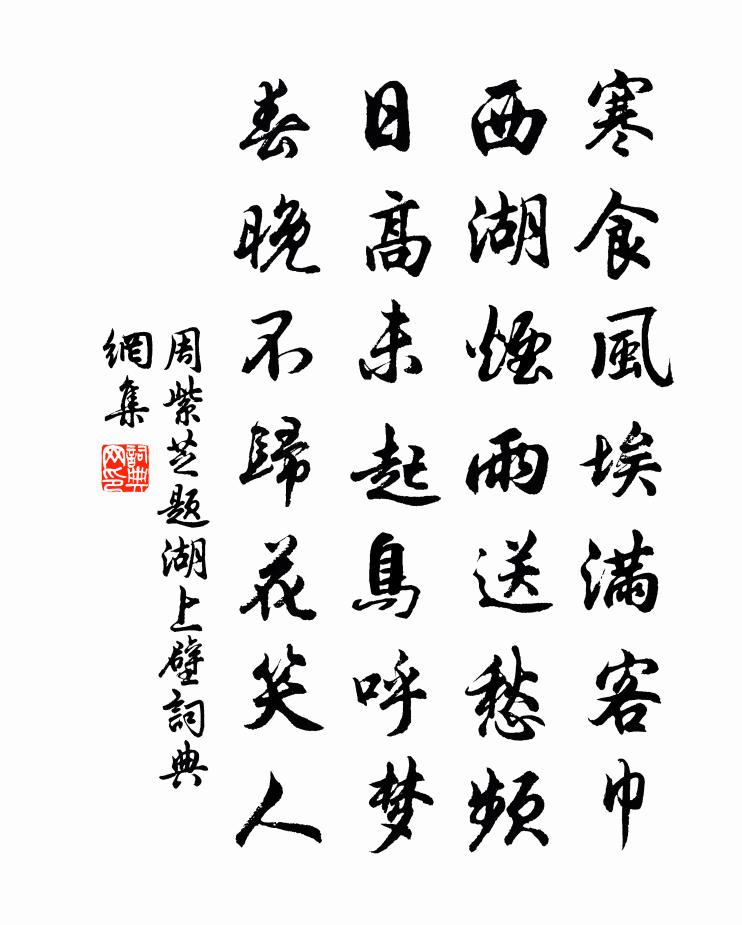 寒食風埃滿客巾
西湖煙雨送愁頻
日高未起鳥呼梦
春晚不歸花笑人
周紫芝题湖上壁詞典
網集
詞典网印